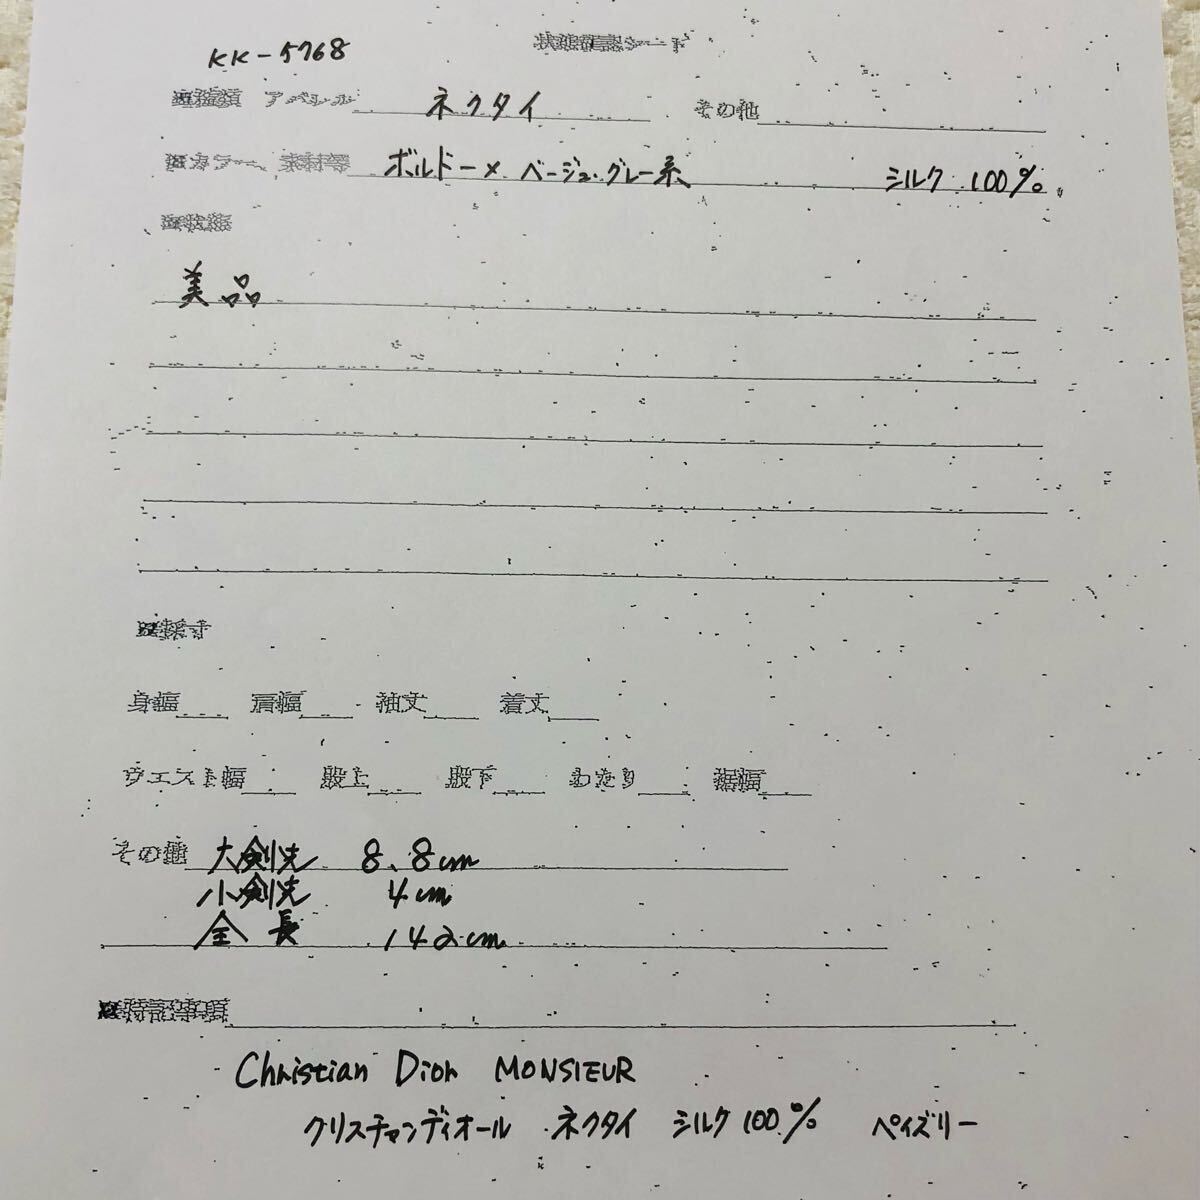 状態確認シート
KK-5768
■種類 アパレル ネクタイ その他
■カラー、素材等 ボルドー× ベージュ・グレー系 シルク 100%
■状態
美品
■採寸
身幅 肩幅 袖丈 着丈
ウエスト幅 股上 股下 わたり 裾幅
その他 大剣先 8.8cm
小剣先 4cm
全長 142cm
■特記事項
Christian Dior MONSIEUR
クリスチャンディオール ネクタイ シルク100% ペイズリー